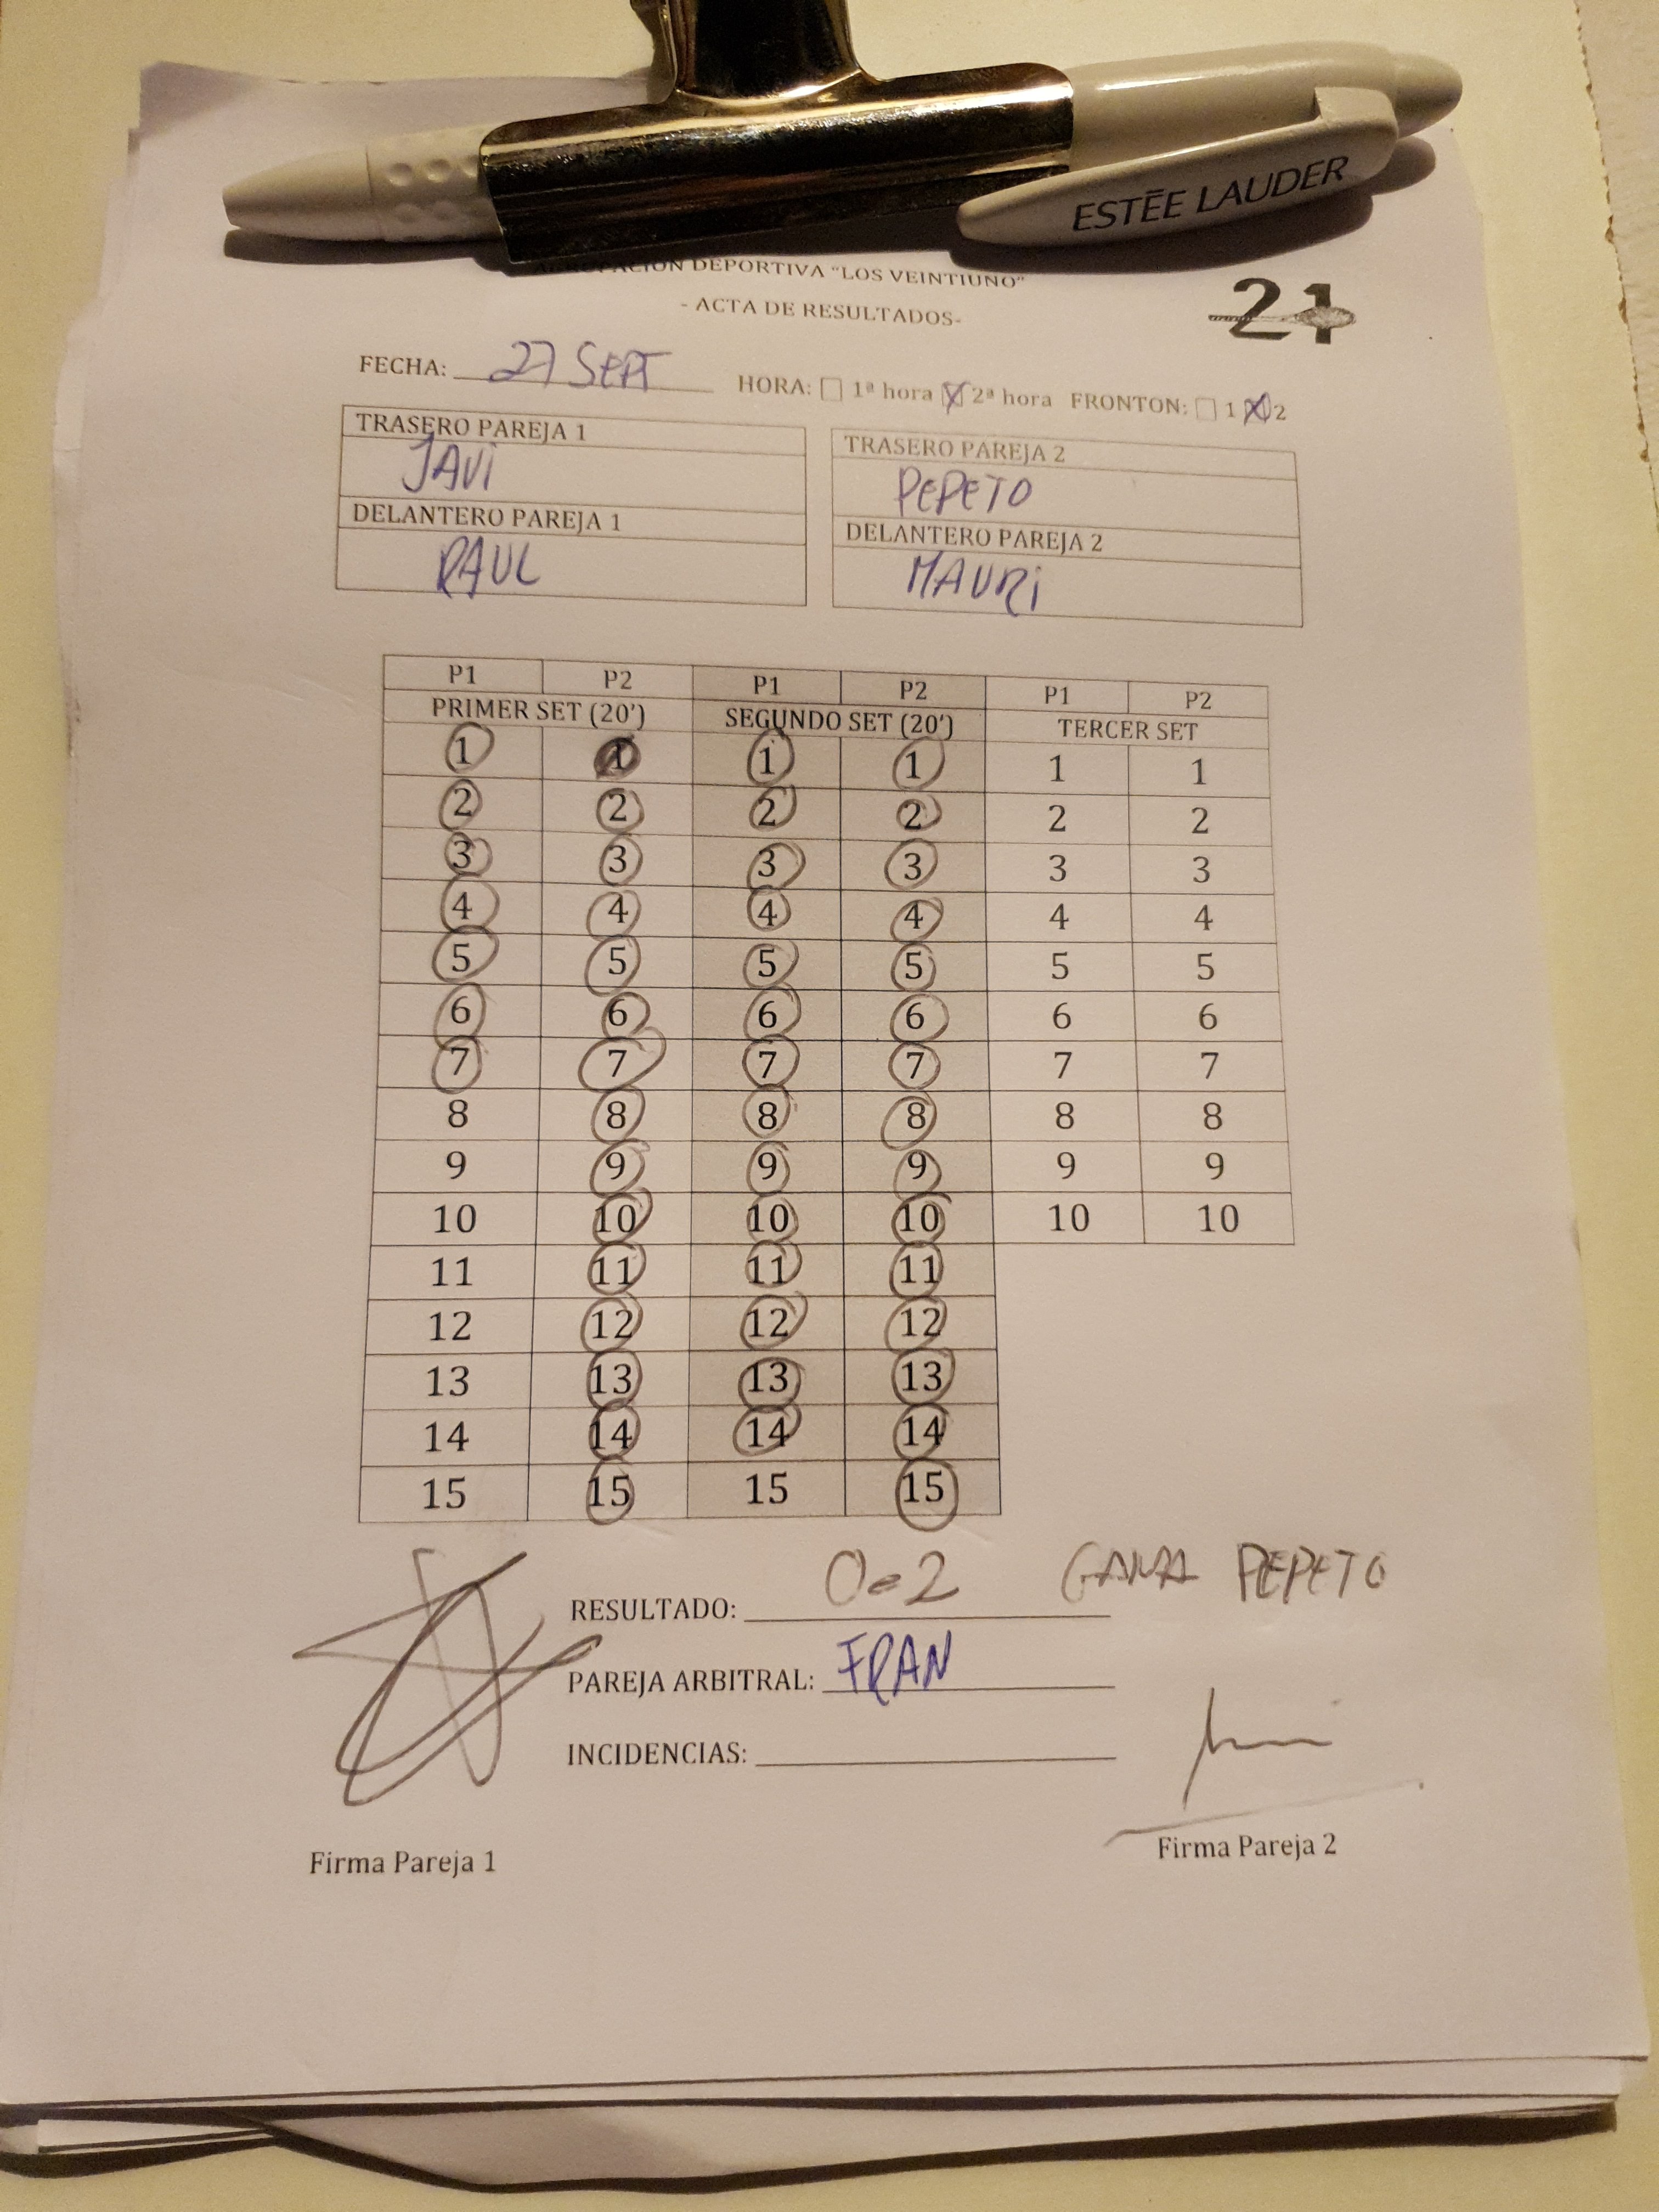 ESTĒE LAUDER
DEPORTIVA "LOS VEINTIUNO"
- ACTA DE RESULTADOS-
21
FECHA: 27 SEPT HORA: 1ª hora X 2ª hora FRONTON: 1 X 2
TRASERO PAREJA 1 TRASERO PAREJA 2
JAVI PEPETO
DELANTERO PAREJA 1 DELANTERO PAREJA 2
RAUL MAURI
P1 P2 P1 P2 P1 P2
PRIMER SET (20') SEGUNDO SET (20') TERCER SET
1 1 1 1 1 1
2 2 2 2 2 2
3 3 3 3 3 3
4 4 4 4 4 4
5 5 5 5 5 5
6 6 6 6 6 6
7 7 7 7 7 7
8 8 8 8 8 8
9 9 9 9 9 9
10 10 10 10 10 10
11 11 11 11
12 12 12 12
13 13 13 13
14 14 14 14
15 15 15 15
RESULTADO: 0-2 GANA PEPETO
PAREJA ARBITRAL: FRAN
INCIDENCIAS:
Firma Pareja 1 Firma Pareja 2